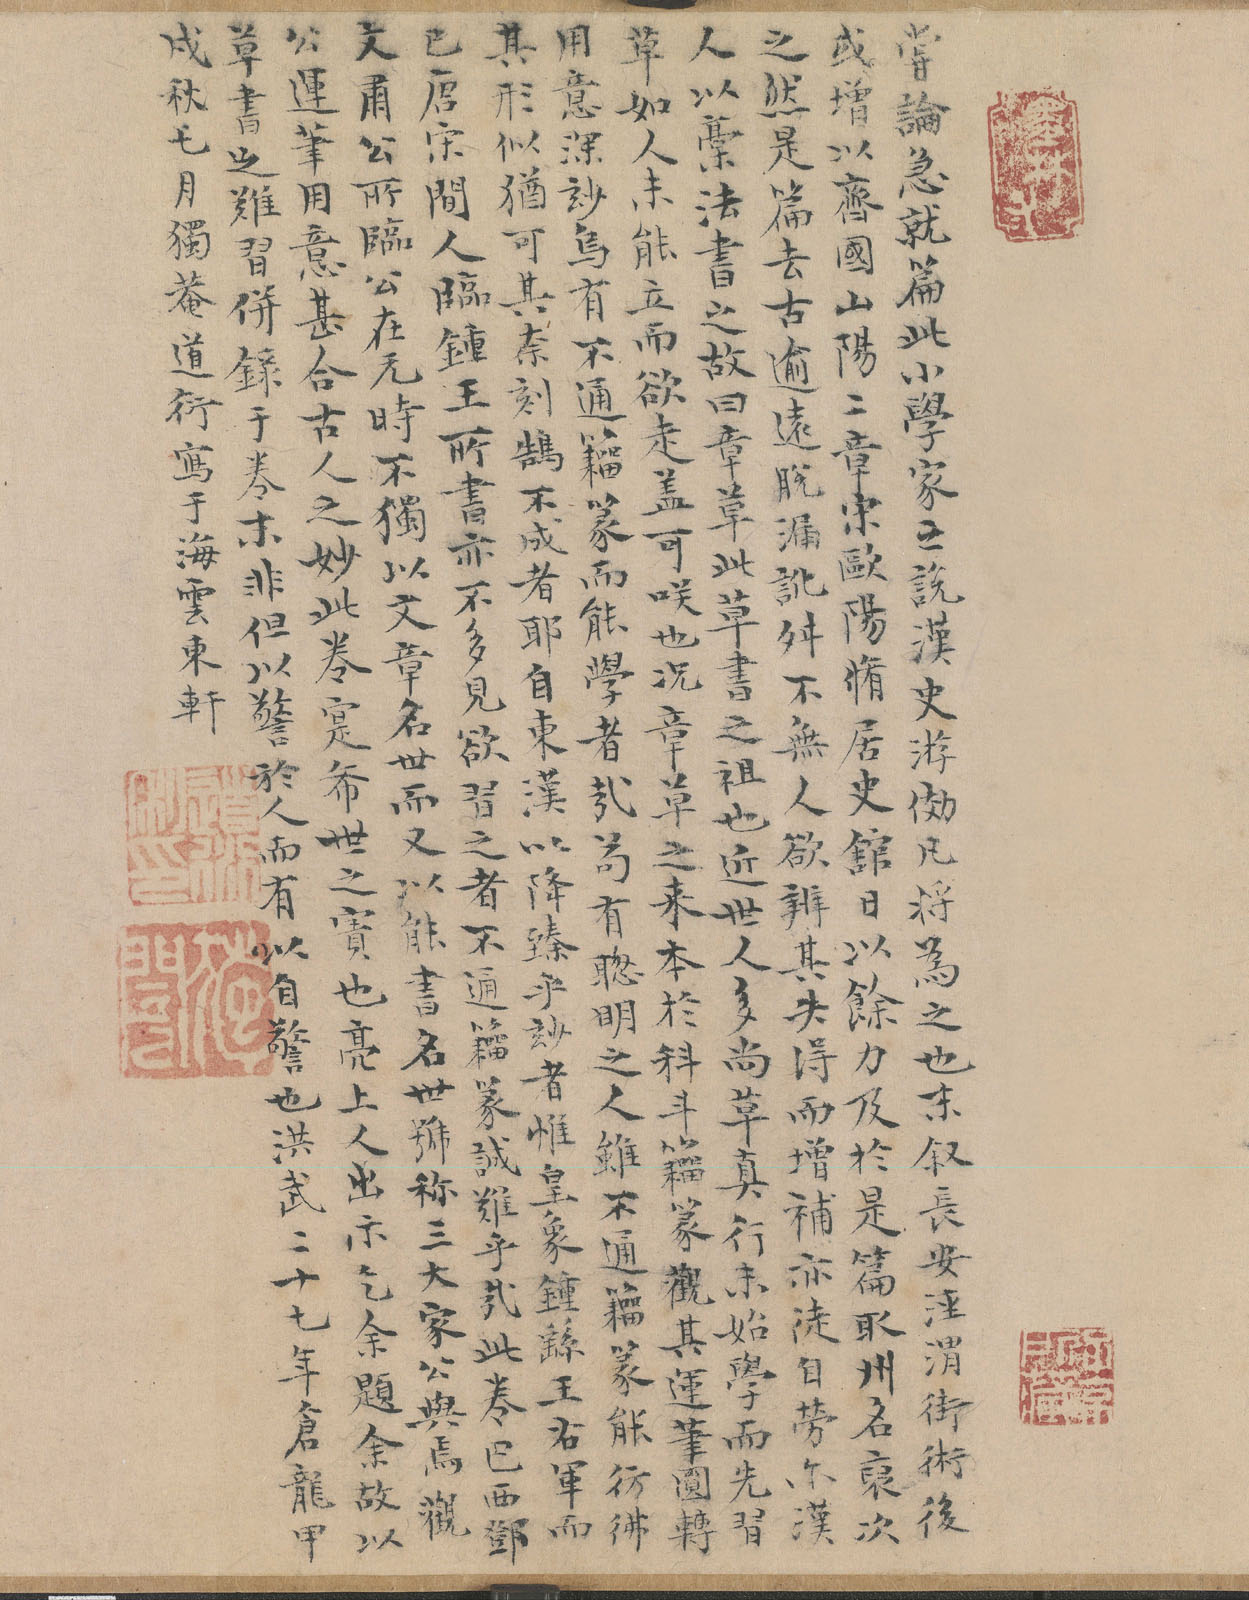 嘗論急就篇此小學家之說漢史游倣凡將為之也末叙長安涇渭街術後
或增以齊國山陽二章宋歐陽脩居史館日以餘力及於是篇取州名裒次
之然是篇去古逾遠脫漏訛舛不無人欲辨其失得而增補亦徒自勞尒漢
人以藁法書之故曰章草此草書之祖也近世人多尚草真行未始學而先習
草如人未能立而欲走盖可咲也况章草之来本於科斗籀篆觀其運筆圓轉
用意深玅烏有不通籀篆而能學者㢤苟有聰明之人雖不通籀篆能彷彿
其形似猶可其柰刻鵠不成者耶自東漢以降臻乎玅者惟皇象鍾繇王右軍而
已唐宋間人臨鍾王所書亦不多見欲習之者不通籀篆誠難乎㢤此卷巴西鄧
文肅公所臨公在元時不獨以文章名世而又以能書名世號称三大家公與焉觀
公運筆用意甚合古人之妙此卷寔希世之寳也亮上人出示乞余題余故以
草書之難習併錄于卷末非但以警於人而有以自警也洪武二十七年倉龍甲
戌秋七月獨菴道衍寫于海雲東軒